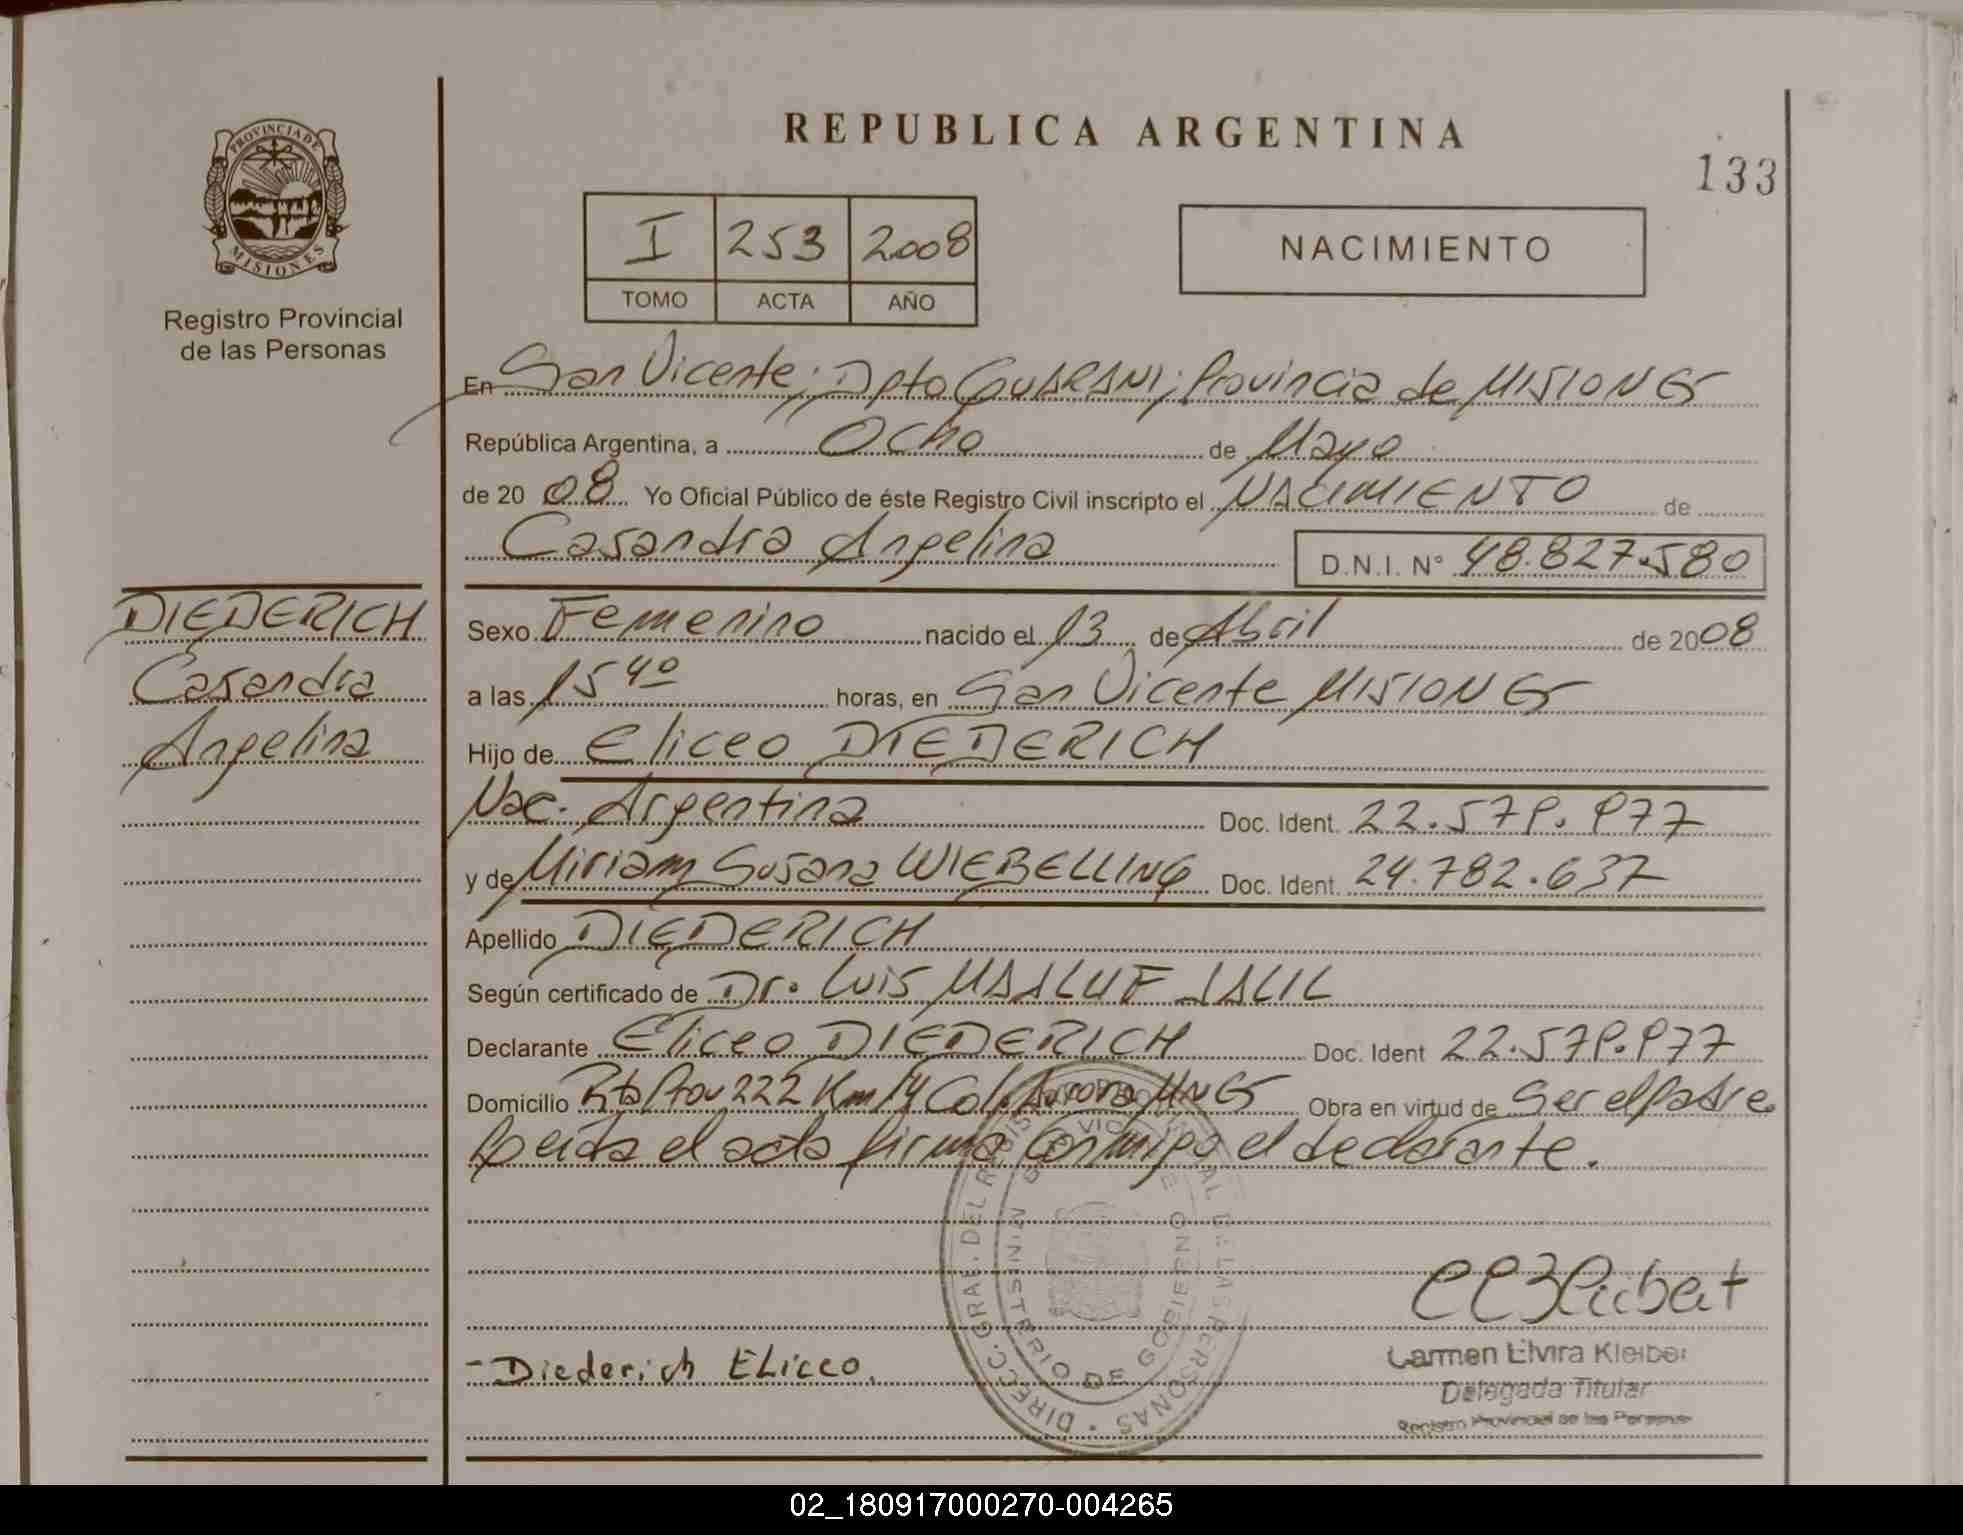 REPUBLICA ARGENTINA
133
PROVINCIA DE MISIONES
Registro Provincial
de las Personas
I 253 2008
TOMO ACTA AÑO
NACIMIENTO
En San Vicente; Dpto GUARANI; Provincia de MISIONES
República Argentina, a Ocho de Mayo
de 20 08 Yo Oficial Público de éste Registro Civil inscripto el NACIMIENTO de
Casandra Angelina D.N.I. N° 48.827.580
DIEDERICH
Casandra
Angelina
Sexo Femenino nacido el 13 de Abril de 2008
a las 15 40 horas, en San Vicente MISIONES
Hijo de Eliceo DIEDERICH
Nac. Argentina Doc. Ident. 22.579.977
y de Miriam Susana WIEBELLING Doc. Ident. 24.782.637
Apellido DIEDERICH
Según certificado de Dr. Luis MAALUF JALIL
Declarante Eliceo DIEDERICH Doc. Ident 22.579.977
Domicilio Rta Prov 222 Km 14 Col. Aurora MNES Obra en virtud de Ser el Padre.
Leida el acta firma conmigo el declarante.
DIRECC. GRAL. DEL REGISTRO PROVINCIAL DE LAS PERSONAS
MINISTERIO DE GOBIERNO
- Diederich ELiceo.
Carmen Elvira Kleiber
Delegada Titular
Registro Provincial de las Personas
02_180917000270-004265